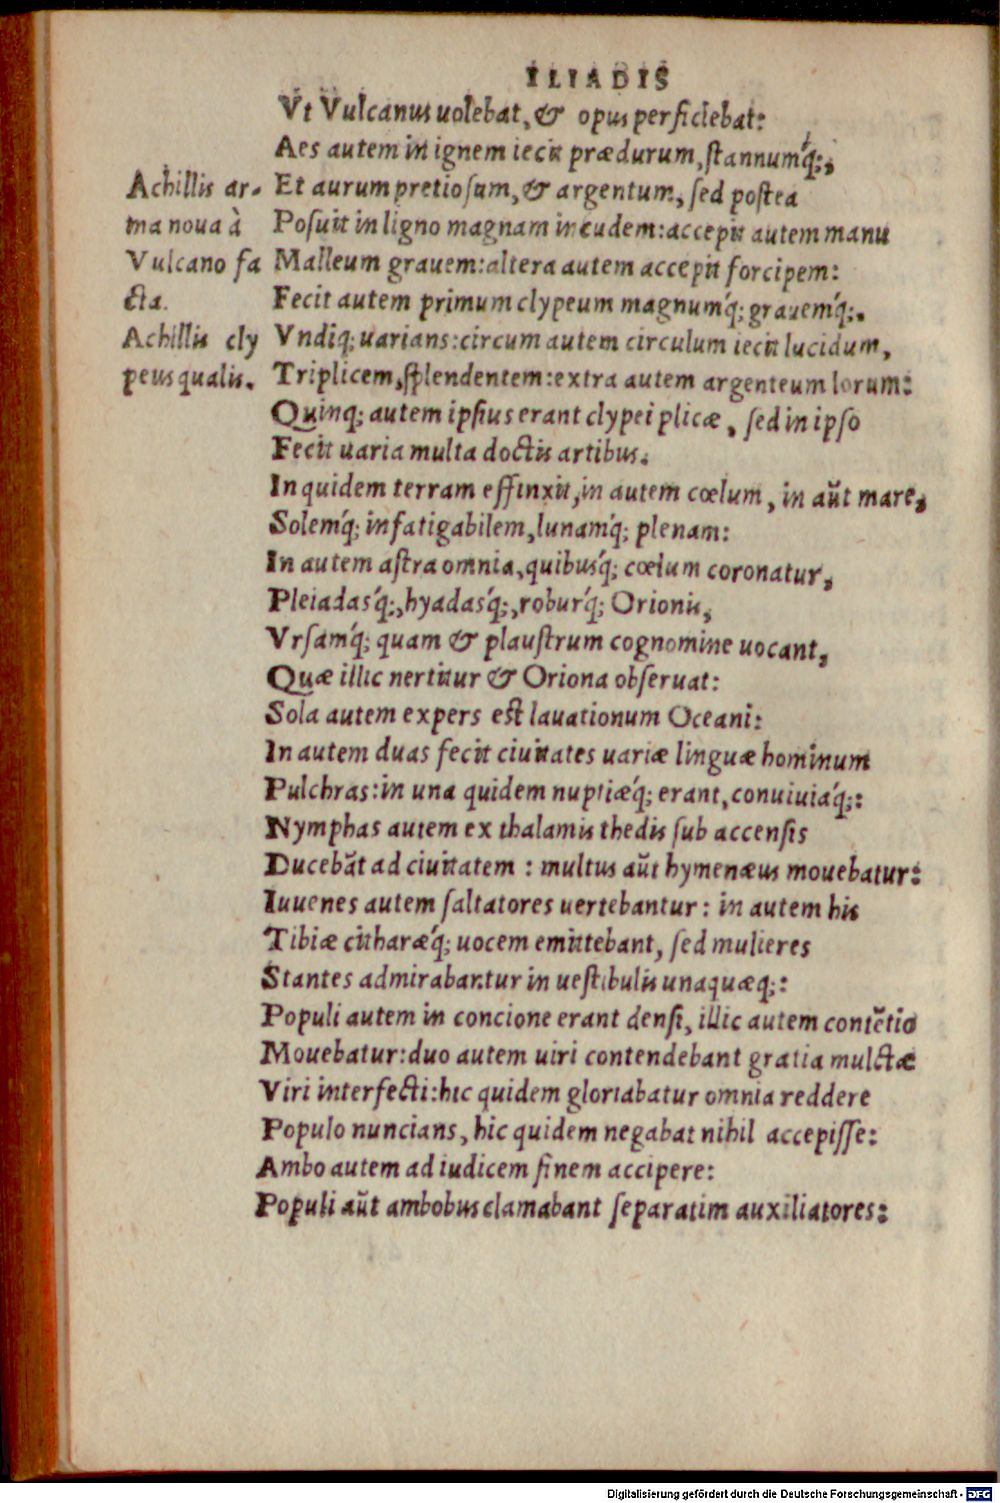 ILIADIS
Vt Vulcanus uolebat, & opus perficiebat:
Aes autem in ignem iecit prædurum, ſtannumq́;,
Achillis ar-
Et aurum pretioſum, & argentum, ſed poſtea
ma noua à
Poſuit in ligno magnam incudem: accepit autem manu
Vulcano fa
Malleum grauem: altera autem accepit forcipem:
cta.
Fecit autem primum clypeum magnumq́; grauemq́;.
Achillis cly
Vndiq; uarians: circum autem circulum iecit lucidum,
peus qualis.
Triplicem, ſplendentem: extra autem argenteum lorum:
Quinq; autem ipſius erant clypei plicæ, ſed in ipſo
Fecit uaria multa doctis artibus.
In quidem terram effinxit, in autem cœlum, in aũt mare,
Solemq́; infatigabilem, lunamq́; plenam:
In autem aſtra omnia, quibusq́; cœlum coronatur,
Pleiadasq́;, hyadasq́;, roburq́; Orionis,
Vrſamq́; quam & plauſtrum cognomine uocant,
Quæ illic nertitur & Oriona obſeruat:
Sola autem expers eſt lauationum Oceani:
In autem duas fecit ciuitates uariæ linguæ hominum
Pulchras: in una quidem nuptiæq́; erant, conuiuiaq́;:
Nymphas autem ex thalamis thedis ſub accenſis
Ducebãt ad ciuitatem : multus aũt hymenæus mouebatur:
Iuuenes autem ſaltatores uertebantur : in autem his
Tibiæ citharæq́; uocem emittebant, ſed mulieres
Stantes admirabantur in ueſtibulis unaquæq;:
Populi autem in concione erant denſi, illic autem contẽtio
Mouebatur: duo autem uiri contendebant gratia mulctæ
Viri interfecti: hic quidem gloriabatur omnia reddere
Populo nuncians, hic quidem negabat nihil accepiſſe:
Ambo autem ad iudicem finem accipere:
Populi aũt ambobus clamabant ſeparatim auxiliatores:
Digitalisierung gefördert durch die Deutsche Forschungsgemeinschaft - DFG